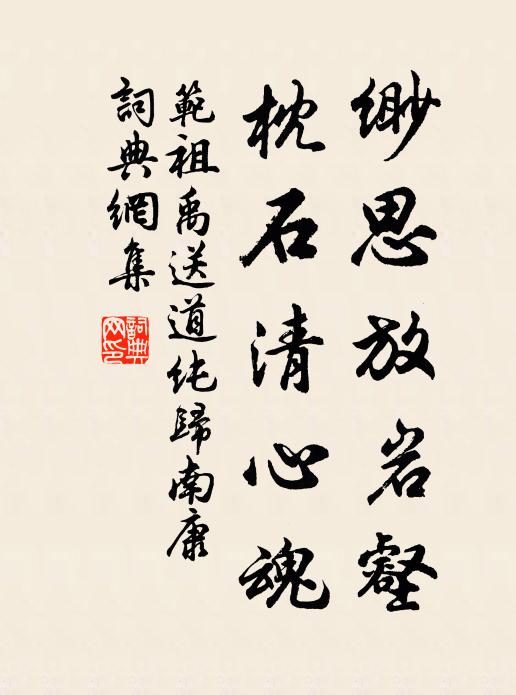 緲思放岩壑
枕石清心魂
範祖禹送道纯歸南康
詞典網集
詞典
网印